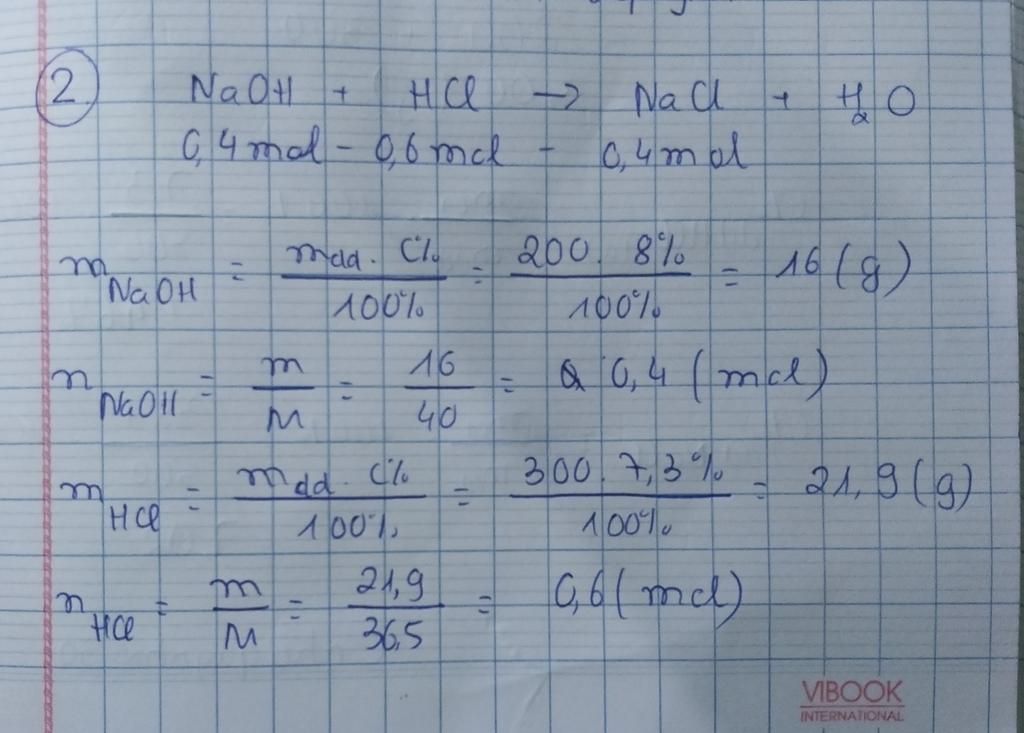 2 NaOH + HCl → NaCl + H₂O
0,4mol - 0,6mol - 0,4mol
m_NaOH = mdd. C% / 100% = 200. 8% / 100% = 16 (g)
n_NaOH = m / M = 16 / 40 = 0,4 (mol)
m_HCl = mdd. C% / 100% = 300. 7,3% / 100% = 21,9 (g)
n_HCl = m / M = 21,9 / 36,5 = 0,6 (mol)
VIBOOK
INTERNATIONAL